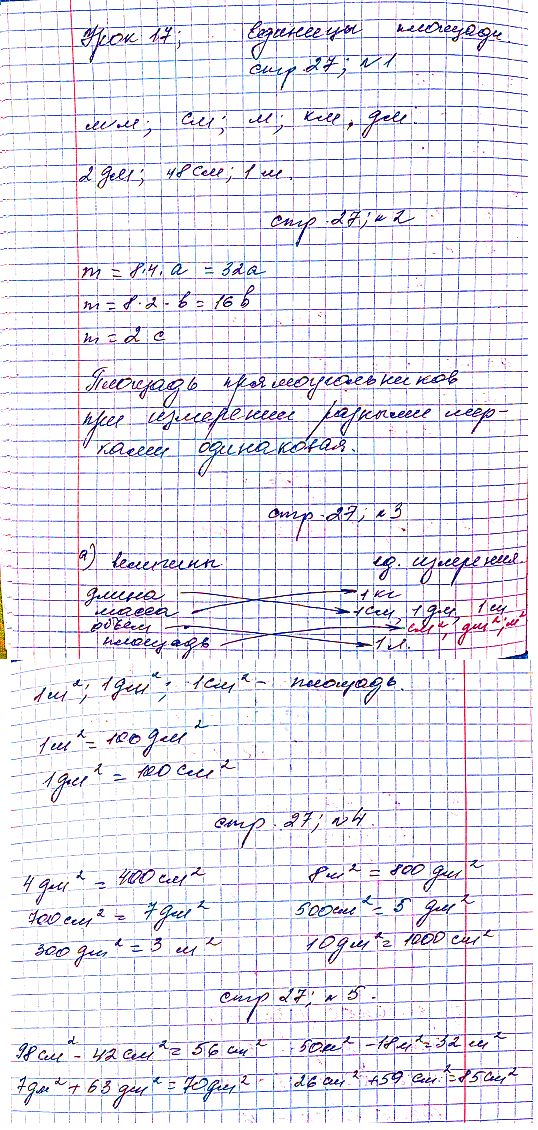 Урок 17; единицы площади
стр 27; №1
мм; см; м; км, дм.
2 дм; 48 см; 1 м.
стр. 27; №2
m = 8·4·a = 32a
m = 8·2·b = 16b
m = 2 c
Площадь прямоугольников
при измерении разными мер-
ками одинаковая.
стр. 27; №3
а) величины ед. измерения.
длина 1 кг
масса 1 см, 1 дм, 1 м
объём см²; дм²; м²
площадь 1 л.
1м²; 1дм²; 1см² - площадь.
1м² = 100дм²
1дм² = 100см²
стр. 27; №4
4 дм² = 400 см² 8м² = 800 дм²
700 см² = 7дм² 500см² = 5 дм²
300 дм² = 3 м² 10дм² = 1000 см²
стр 27; №5.
98см² - 42см² = 56см² 50м² - 18м² = 32 м²
7дм² + 63 дм² = 70дм² 26см² + 59 см² = 85см²